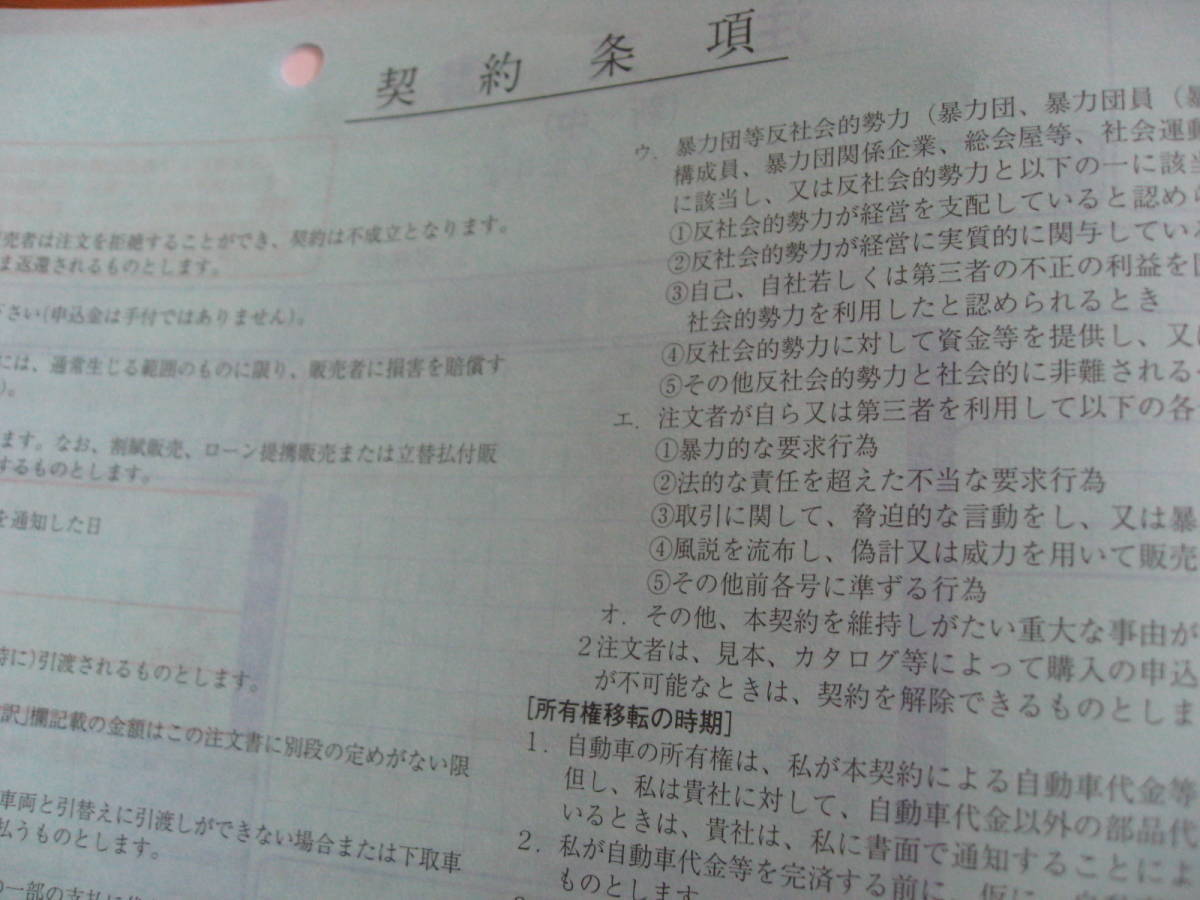 契約条項
売者は注文を拒絶することができ、契約は不成立となります。
ま返還されるものとします。
さい(申込金は手付ではありません)。
には、通常生じる範囲のものに限り、販売者に損害を賠償す
)。
ます。なお、割賦販売、ローン提携販売または立替払付販
するものとします。
を通知した日
時に)引渡されるものとします。
訳」欄記載の金額はこの注文書に別段の定めがない限
車両と引替えに引渡しができない場合または下取車
払うものとします。
の一部の支払に
ウ. 暴力団等反社会的勢力（暴力団、暴力団員（暴
構成員、暴力団関係企業、総会屋等、社会運動
に該当し、又は反社会的勢力と以下の一に該当
①反社会的勢力が経営を支配していると認めら
②反社会的勢力が経営に実質的に関与している
③自己、自社若しくは第三者の不正の利益を
社会的勢力を利用したと認められるとき
④反社会的勢力に対して資金等を提供し、又は
⑤その他反社会的勢力と社会的に非難される
エ. 注文者が自ら又は第三者を利用して以下の各
①暴力的な要求行為
②法的な責任を超えた不当な要求行為
③取引に関して、脅迫的な言動をし、又は暴
④風説を流布し、偽計又は威力を用いて販売
⑤その他前各号に準ずる行為
オ. その他、本契約を維持しがたい重大な事由が
2注文者は、見本、カタログ等によって購入の申込
が不可能なときは、契約を解除できるものとしま
[所有権移転の時期]
1. 自動車の所有権は、私が本契約による自動車代金等
但し、私は貴社に対して、自動車代金以外の部品代
いるときは、貴社は、私に書面で通知することによ
2. 私が自動車代金等を完済する前に、仮に、
ものとします